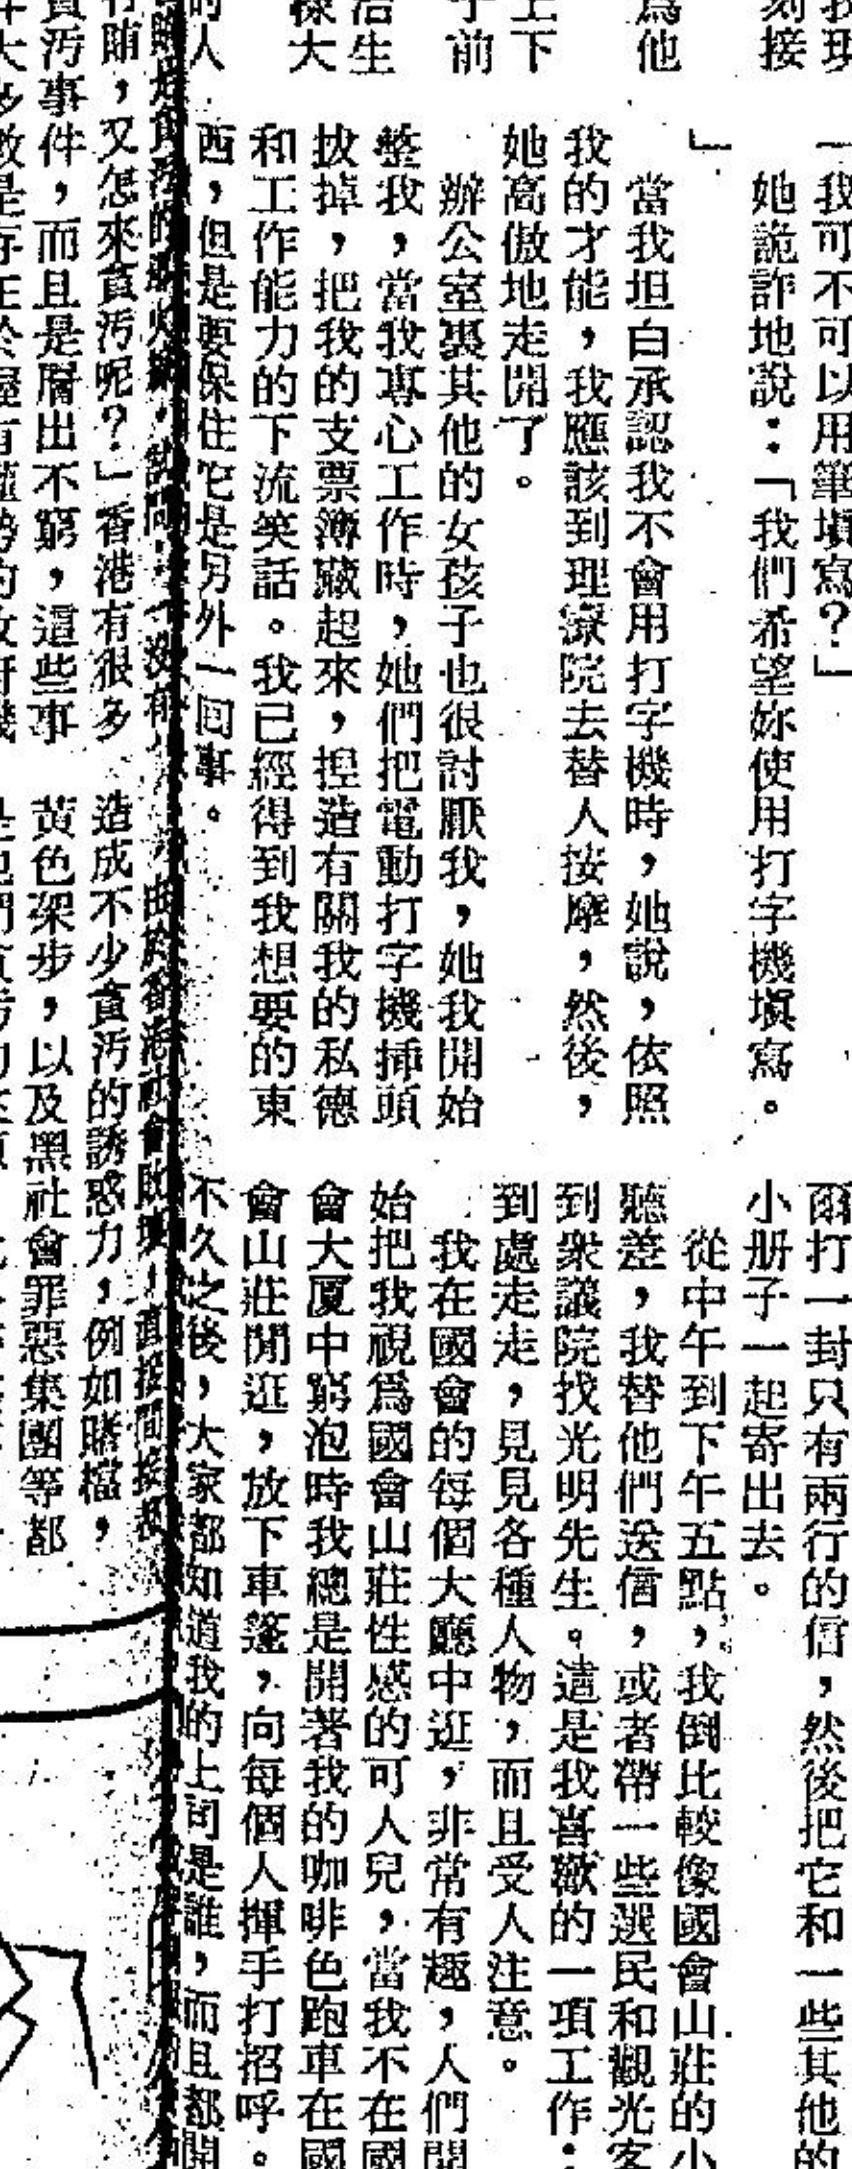 我現
刻接
為他
上下
于前
治生
樣大
的人
一我可不可以用筆填寫？」
她詭詐地說：「我們希望妳使用打字機塡寫。
」
當我坦白承認我不會用打字機時，她說，依照
我的才能，我應該到理療院去替人按摩，然後，
她高傲地走開了。
辦公室裏其他的女孩子也很討厭我，她我開始
整我，當我專心工作時，她們把電動打字機挿頭
拔掉，把我的支票簿藏起來，揑造有關我的私德
和工作能力的下流笑話。我已經得到我想要的東
西，但是要保住它是另外一回事。
爾打一封只有兩行的信，然後把它和一些其他的
小册子一起寄出去。
從中午到下午五點，我倒比較像國會山莊的小
聽差，我替他們送信，或者帶一些選民和觀光客
到衆議院找光明先生。這是我喜歡的一項工作：
到處走走，見見各種人物，而且受人注意。
我在國會的每個大廳中逛，非常有趣，人們開
始把我視爲國會山莊性感的可人兒，當我不在國
會大厦中窮泡時我總是開著我的咖啡色跑車在國
會山莊閒逛，放下車篷，向每個人揮手打招呼。
不久之後，大家都知道我的上司是誰，而且都開
賄，又怎來貪汚呢？」香港有很多
貪汚事件，而且是層出不窮，這些事
件大多數是存在於握有權勢的政府機
由於香港社會
造成不少貪汚的誘惑力，例如賭檔，
黄色架步，以及黑社會罪惡集團等都
是他們貪汚的